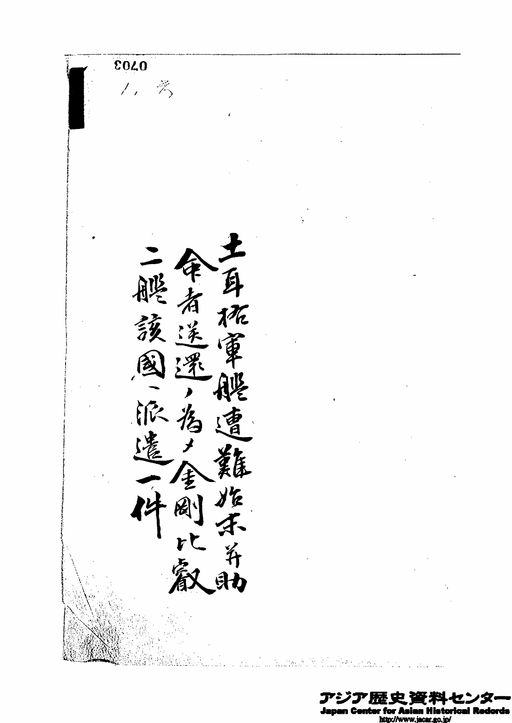 0703
土耳格軍艦遭難始末并助
命者送還ノ為メ金剛比叡
二艦該國ヘ派遣一件
アジア歴史資料センター
Japan Center for Asian Historical Records
http://www.jacar.go.jp/